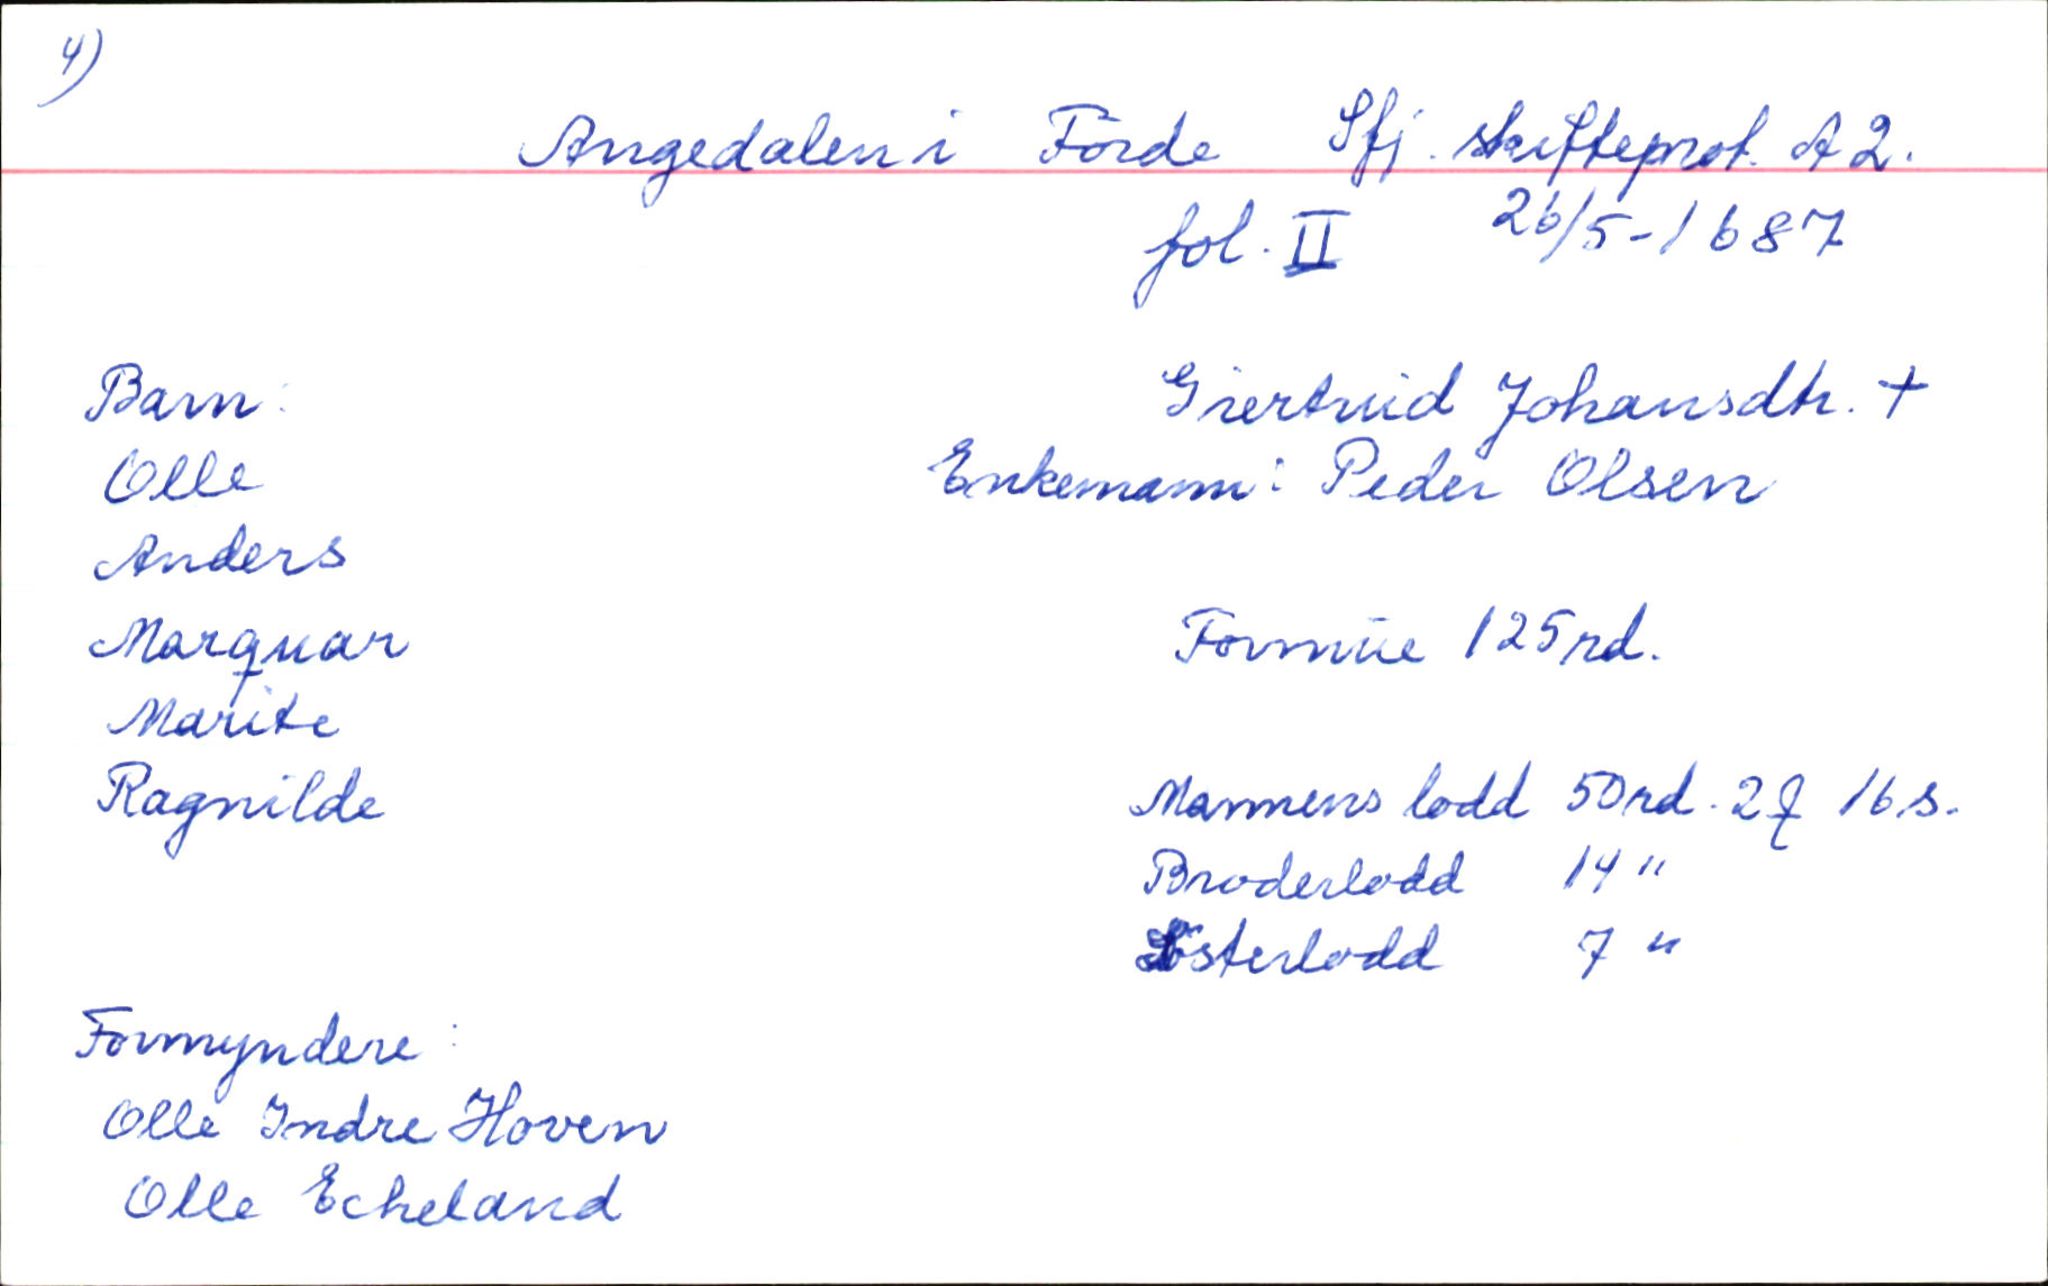 4)
Angedalen i Förde Sfj. skifteprot. A 2.
fol. II 26/5-1687
Barn: Giertruid Johansdtr. +
Olle Enkemann: Peder Olsen
Anders
Marquar Formüe 125 rd.
Marite
Ragnilde Mannens lodd 50 rd. 2 q 16 s.
Broderlodd 14 "
Søsterlodd 7 "
Formyndere:
Olle Indre Hoven
Olle Echeland